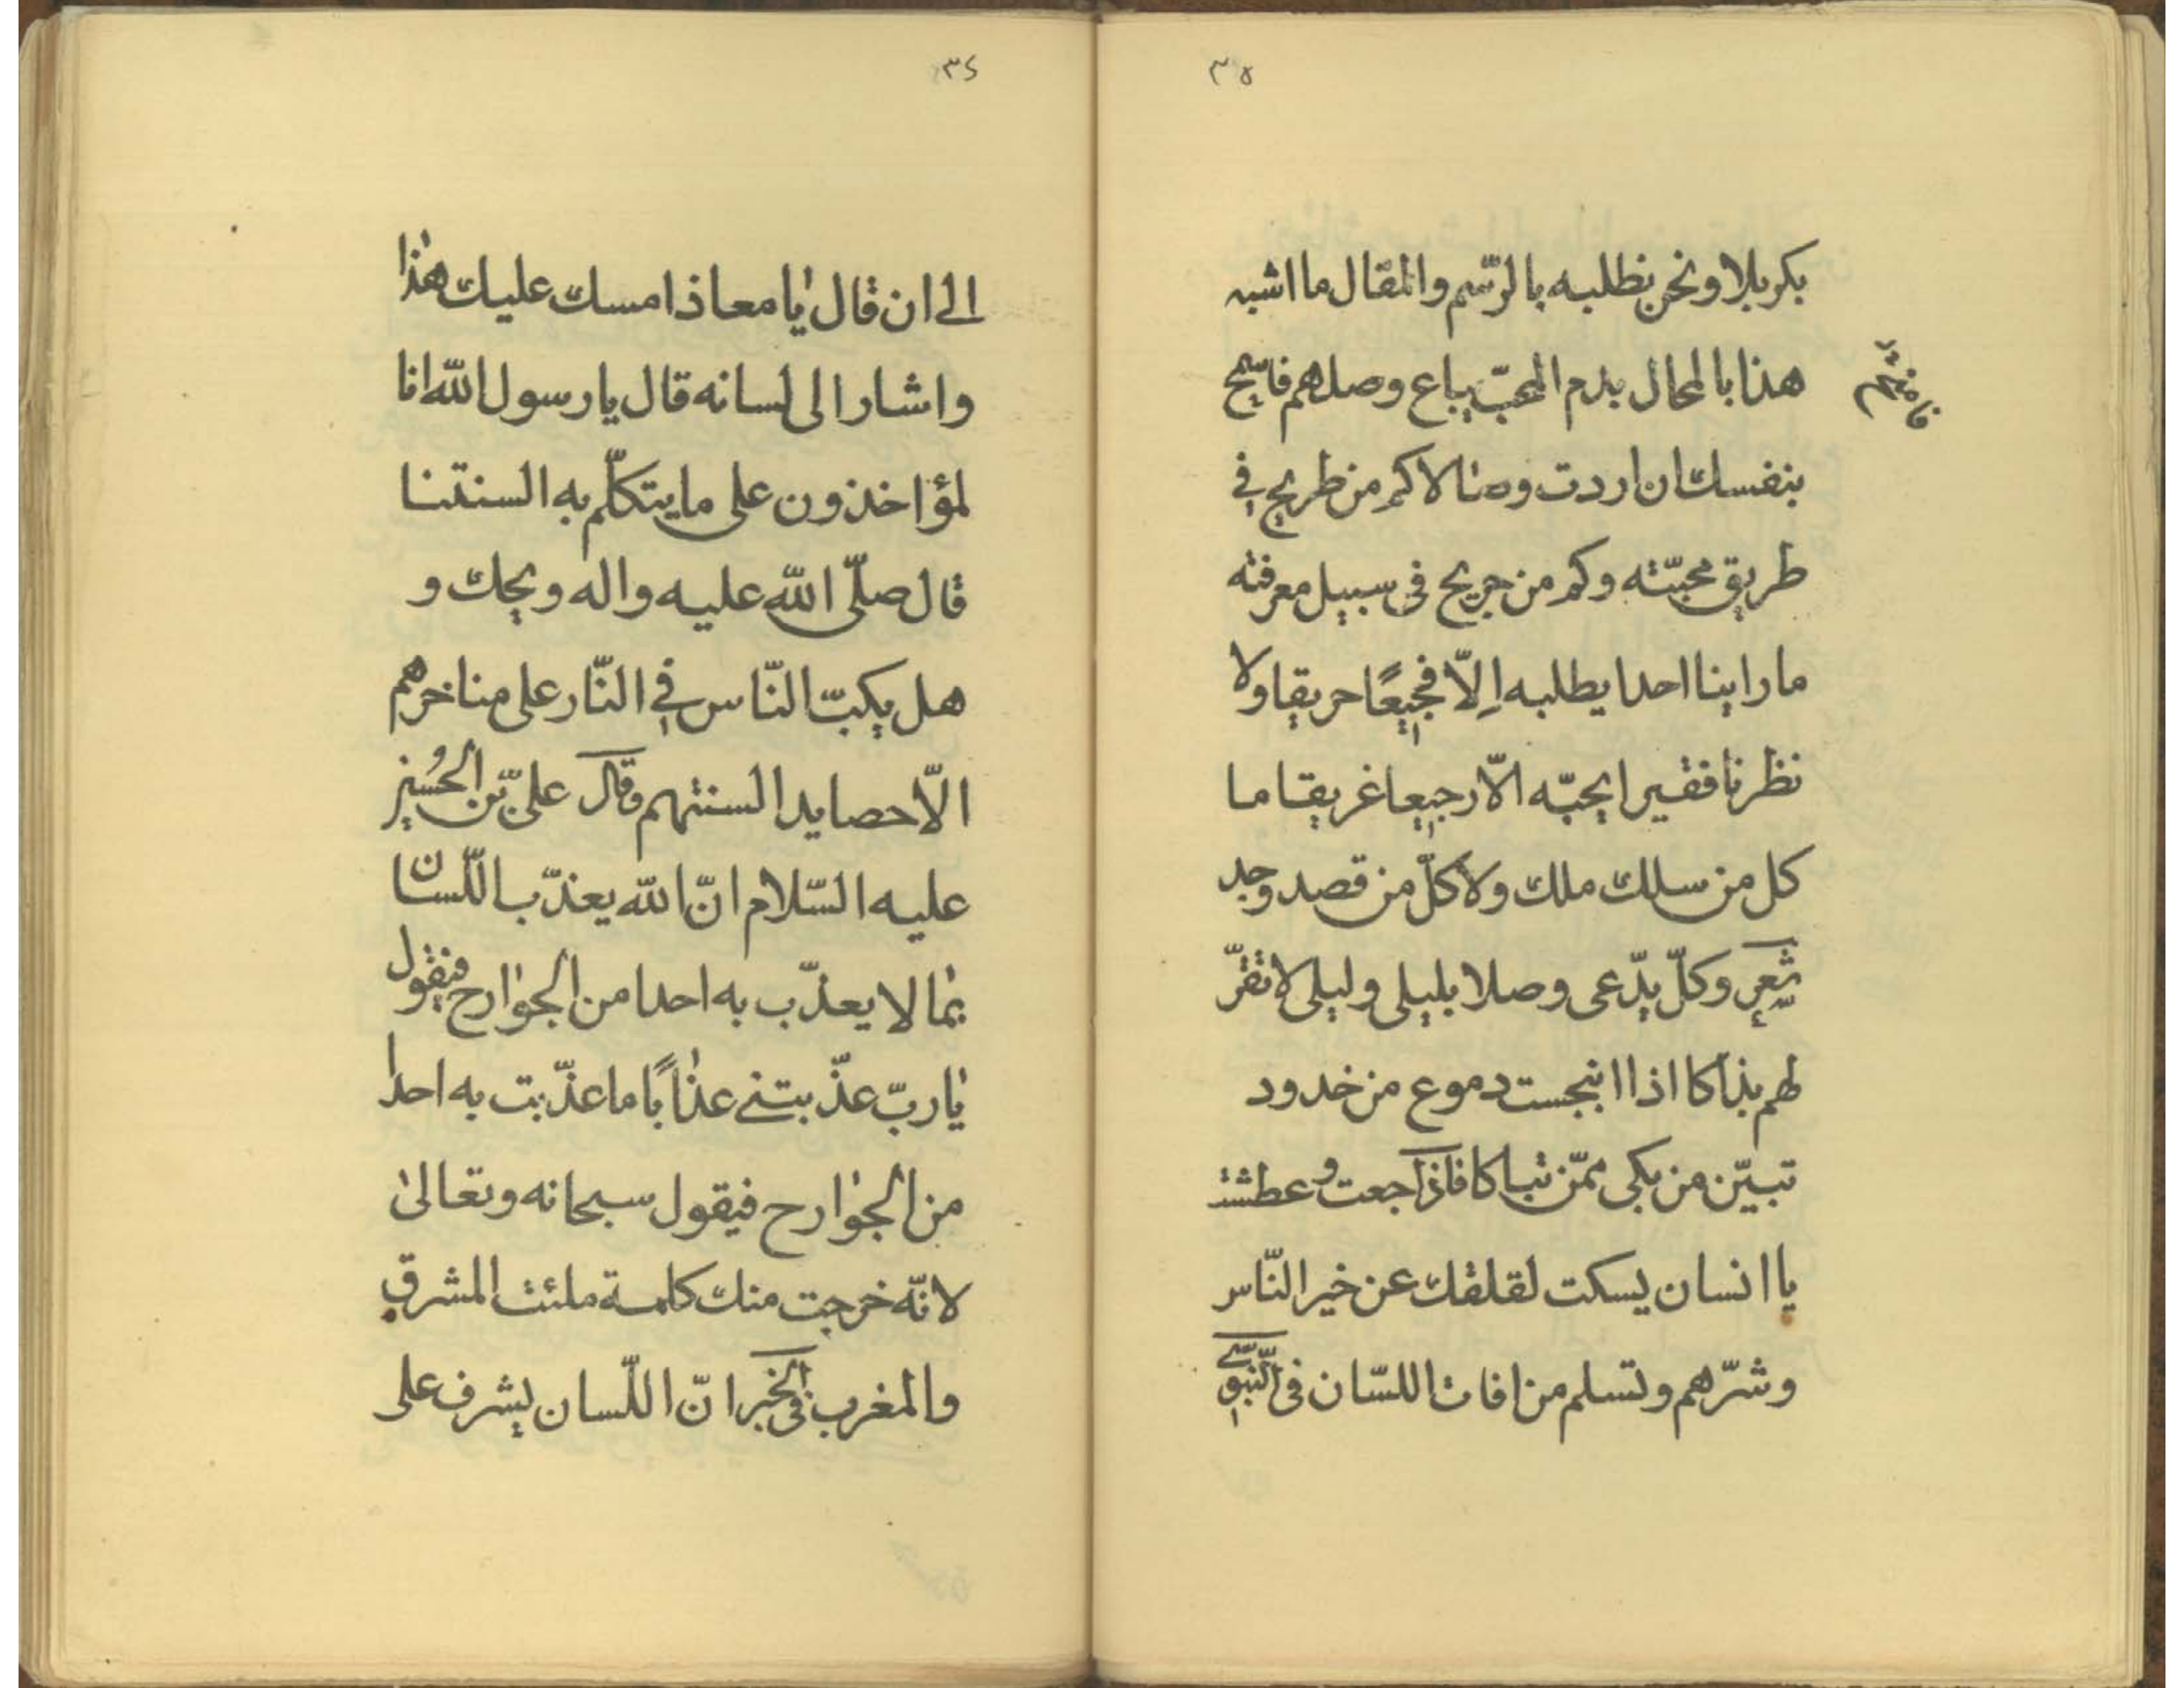 ٣٥
بكربلا ونحن نطلبه بالرّسم والمقال ما اشبه
هذا بالمحال بدم المحبّ يباع وصلهم فاسمح
بنفسك ان اردت وصالا كم من طريح في
طريق محبّته وكم من جريح فى سبيل معرفته
ما راينا احدا يطلبه اِلّا فجيعًا حريقا ولا
نظرنا فقيرا يحبّه الّا رجيعا غريقا ما
كل من سلك ملك ولا كلّ من قصد وجد
شعر وكلّ يدّعى وصلا بليلى وليلى لا تقرّ
لهم بذاكا اذا انبجست دموع من خدود
تبيّن من بكى ممّن تباكا فاذا جعت وعطشت
يا انسان يسكت لقلقك عن خير النّاس
وشرّهم وتسلم من افات اللسّان فى النّبوىّ
٣٤
الى ان قال يا معاذ امسك عليك هذا
واشار الى لسانه قال يا رسول اللّه انا
لمؤاخذون على ما يتكلّم به السنتنا
قال صلّى اللّه عليه واله ويحك و
هل يكبّ النّاس في النّار على مناخرهم
الّا حصايد السنتهم وقال علىّ بن الحُسين
عليه السّلام انّ اللّه يعذّب اللّسان
بما لا يعذّب به احدا من الجوارح فيقول
يا ربّ عذّبتنى عذابًا ما عذّبت به احدا
من الجوارح فيقول سبحانه وتعالى
لانّه خرجت منك كلمة ملئت المشرق
والمغرب فى الخبر انّ اللّسان يشرف على